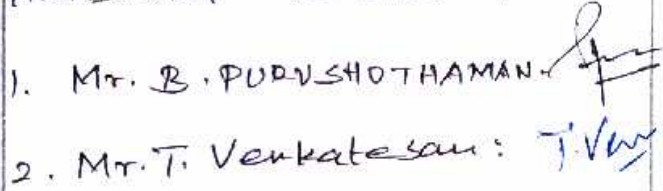 1. Mr. B. PURUSHOTHAMAN.
2. Mr. T. Venkatesan: T. Ven